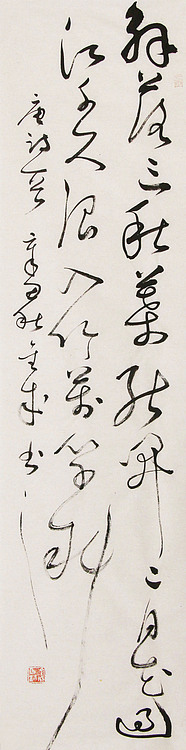 解落三秋葉能開二月花過
江千尺浪入竹萬竿斜
唐詩一首 秋 書